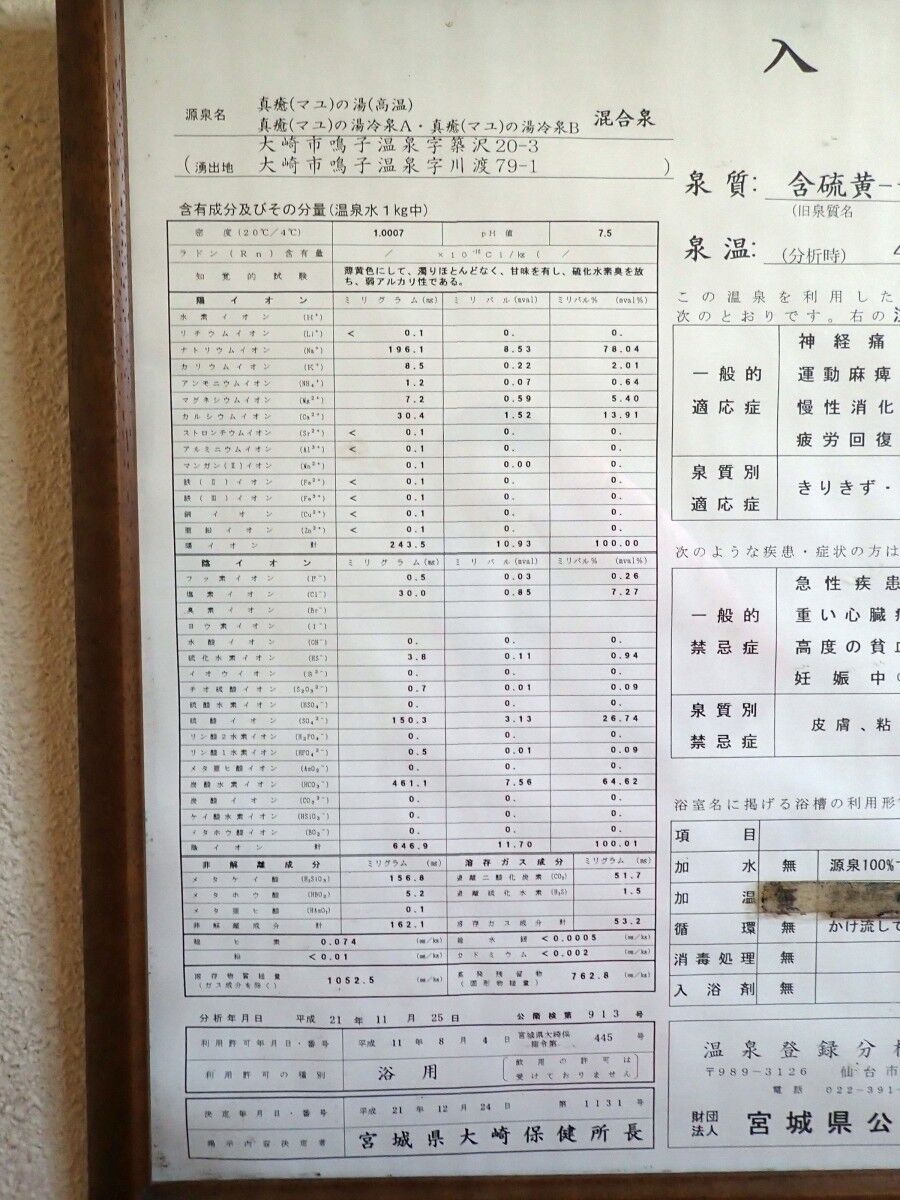 入
源泉名 真癒(マユ)の湯(高温)
真癒(マユ)の湯冷泉A・真癒(マユ)の湯冷泉B 混合泉
大崎市鳴子温泉字築沢20-3
(湧出地 大崎市鳴子温泉字川渡79-1 )
含有成分及びその分量(温泉水1kg中)
密度(20℃/4℃) 1.0007 pH値 7.5
ラドン(Rn)含有量 / ×10⁻¹⁰Ci/kg ( /
知覚的試験 薄黄色にして、濁りほとんどなく、甘味を有し、硫化水素臭を放
ち、弱アルカリ性である。
陽イオン ミリグラム(mg) ミリバル(mval) ミリバル%(mval%)
水素イオン (H⁺)
リチウムイオン (Li⁺) < 0.1 0. 0.
ナトリウムイオン (Na⁺) 196.1 8.53 78.04
カリウムイオン (K⁺) 8.5 0.22 2.01
アンモニウムイオン (NH₄⁺) 1.2 0.07 0.64
マグネシウムイオン (Mg²⁺) 7.2 0.59 5.40
カルシウムイオン (Ca²⁺) 30.4 1.52 13.91
ストロンチウムイオン (Sr²⁺) < 0.1 0. 0.
アルミニウムイオン (Al³⁺) < 0.1 0. 0.
マンガン(Ⅱ)イオン (Mn²⁺) 0.1 0.00 0.
鉄(Ⅱ)イオン (Fe²⁺) < 0.1 0. 0.
鉄(Ⅲ)イオン (Fe³⁺) < 0.1 0. 0.
銅イオン (Cu²⁺) < 0.1 0. 0.
亜鉛イオン (Zn²⁺) < 0.1 0. 0.
陽イオン計 243.5 10.93 100.00
陰イオン ミリグラム(mg) ミリバル(mval) ミリバル%(mval%)
フッ素イオン (F⁻) 0.5 0.03 0.26
塩素イオン (Cl⁻) 30.0 0.85 7.27
臭素イオン (Br⁻)
ヨウ素イオン (I⁻)
水酸イオン (OH⁻) 0. 0. 0.
硫化水素イオン (HS⁻) 3.8 0.11 0.94
イオウイオン (S²⁻) 0. 0. 0.
チオ硫酸イオン (S₂O₃²⁻) 0.7 0.01 0.09
硫酸水素イオン (HSO₄⁻) 0. 0. 0.
硫酸イオン (SO₄²⁻) 150.3 3.13 26.74
リン酸2水素イオン (H₂PO₄⁻) 0. 0. 0.
リン酸1水素イオン (HPO₄²⁻) 0.5 0.01 0.09
メタ亜ヒ酸イオン (AsO₂⁻) 0. 0. 0.
炭酸水素イオン (HCO₃⁻) 461.1 7.56 64.62
炭酸イオン (CO₃²⁻) 0. 0. 0.
ケイ酸水素イオン (HSiO₃⁻) 0. 0. 0.
メタホウ酸イオン (BO₂⁻) 0. 0. 0.
陰イオン計 646.9 11.70 100.01
非解離成分 ミリグラム(mg) 溶存ガス成分 ミリグラム(mg)
メタケイ酸 (H₂SiO₃) 156.8 遊離二酸化炭素(CO₂) 51.7
メタホウ酸 (HBO₂) 5.2 遊離硫化水素(H₂S) 1.5
メタ亜ヒ酸 (HAsO₂) 0.1
非解離成分計 162.1 溶存ガス成分計 53.2
総ヒ素 0.074 (mg/kg) 総水銀 <0.0005 (mg/kg)
鉛 <0.01 (mg/kg) カドミウム <0.002 (mg/kg)
溶存物質総量
(ガス成分を除く) 1052.5 (mg/kg) 蒸発残留物
(固形物総量) 762.8 (mg/kg)
分析年月日 平成21年11月25日 公衛検第913号
利用許可年月日・番号 平成11年8月4日 宮城県大崎保
指令第 445号
利用許可の種別 浴用 (飲用の許可は
受けておりません)
決定年月日・番号 平成21年12月24日 第1131号
掲示内容決定者 宮城県大崎保健所長
泉質: 含硫黄-
(旧泉質名
泉温: (分析時) 4
この温泉を利用した
次のとおりです。右の注
一般的
適応症
神経痛
運動麻痺
慢性消化
疲労回復
泉質別
適応症
きりきず・
次のような疾患・症状の方は
一般的
禁忌症
急性疾患
重い心臓病
高度の貧血
妊娠中
泉質別
禁忌症
皮膚、粘
浴室名に掲げる浴槽の利用形
項目
加水 無 源泉100%
加温 無
循環 無 かけ流して
消毒処理 無
入浴剤 無
温泉登録分析
〒989-3126 仙台市
電話 022-391-
財団
法人 宮城県公